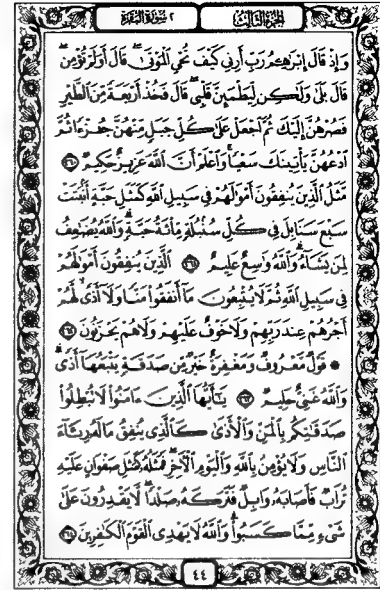 الجزء الثالث ٢ سورة البقرة
وَإِذْ قَالَ إِبْرَٰهِـۧمُ رَبِّ أَرِنِى كَيْفَ تُحْىِ ٱلْمَوْتَىٰ ۖ قَالَ أَوَلَمْ تُؤْمِن ۖ
قَالَ بَلَىٰ وَلَـٰكِن لِّيَطْمَئِنَّ قَلْبِى ۖ قَالَ فَخُذْ أَرْبَعَةً مِّنَ ٱلطَّيْرِ
فَصُرْهُنَّ إِلَيْكَ ثُمَّ ٱجْعَلْ عَلَىٰ كُلِّ جَبَلٍ مِّنْهُنَّ جُزْءًا ثُمَّ
ٱدْعُهُنَّ يَأْتِينَكَ سَعْيًا ۚ وَٱعْلَمْ أَنَّ ٱللَّهَ عَزِيزٌ حَكِيمٌ ٢٦٠
مَّثَلُ ٱلَّذِينَ يُنفِقُونَ أَمْوَٰلَهُمْ فِى سَبِيلِ ٱللَّهِ كَمَثَلِ حَبَّةٍ أَنۢبَتَتْ
سَبْعَ سَنَابِلَ فِى كُلِّ سُنۢبُلَةٍ مِّا۟ئَةُ حَبَّةٍ ۗ وَٱللَّهُ يُضَـٰعِفُ
لِمَن يَشَآءُ ۗ وَٱللَّهُ وَٰسِعٌ عَلِيمٌ ٢٦١ ٱلَّذِينَ يُنفِقُونَ أَمْوَٰلَهُمْ
فِى سَبِيلِ ٱللَّهِ ثُمَّ لَا يُتْبِعُونَ مَآ أَنفَقُوا۟ مَنًّا وَلَآ أَذًى ۙ لَّهُمْ
أَجْرُهُمْ عِندَ رَبِّهِمْ وَلَا خَوْفٌ عَلَيْهِمْ وَلَا هُمْ يَحْزَنُونَ ٢٦٢
* قَوْلٌ مَّعْرُوفٌ وَمَغْفِرَةٌ خَيْرٌ مِّن صَدَقَةٍ يَتْبَعُهَآ أَذًى ۗ
وَٱللَّهُ غَنِىٌّ حَلِيمٌ ٢٦٣ يَـٰٓأَيُّهَا ٱلَّذِينَ ءَامَنُوا۟ لَا تُبْطِلُوا۟
صَدَقَـٰتِكُم بِٱلْمَنِّ وَٱلْأَذَىٰ كَٱلَّذِى يُنفِقُ مَالَهُۥ رِئَآءَ
ٱلنَّاسِ وَلَا يُؤْمِنُ بِٱللَّهِ وَٱلْيَوْمِ ٱلْـَٔاخِرِ ۖ فَمَثَلُهُۥ كَمَثَلِ صَفْوَانٍ عَلَيْهِ
تُرَابٌ فَأَصَابَهُۥ وَابِلٌ فَتَرَكَهُۥ صَلْدًا ۖ لَّا يَقْدِرُونَ عَلَىٰ
شَىْءٍ مِّمَّا كَسَبُوا۟ ۗ وَٱللَّهُ لَا يَهْدِى ٱلْقَوْمَ ٱلْكَـٰفِرِينَ ٢٦٤
٤٤